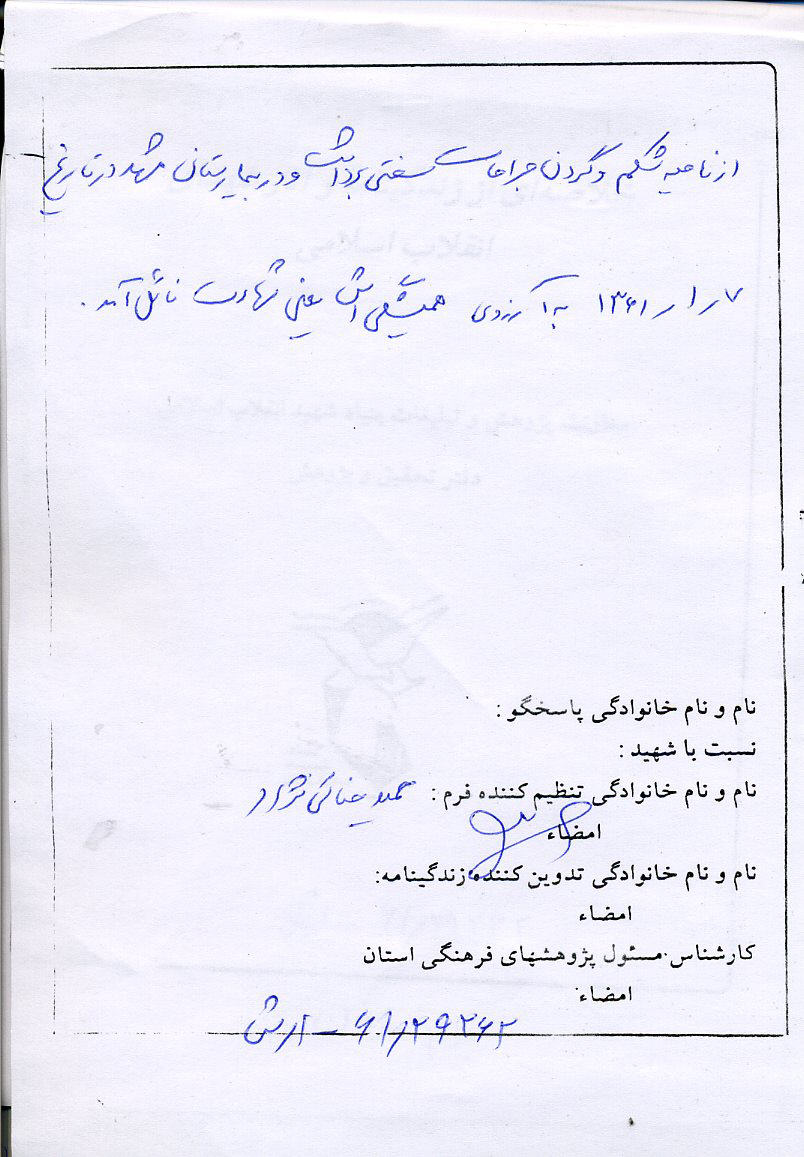 از ناحیه شکم و گردن جراحات سختی برداشت و در بیمارستان مشهد در تاریخ
۷ ر ۱ ر ۱۳۶۱ به آرزوی همیشگی اش یعنی شهادت نائل آمد.
نام و نام خانوادگی پاسخگو :
نسبت با شهید :
نام و نام خانوادگی تنظیم کننده فرم : حمید خاکی نژاد
امضاء
نام و نام خانوادگی تدوین کننده زندگینامه:
امضاء
کارشناس مسئول پژوهشهای فرهنگی استان
امضاء
۶۱ر۲۹۲۶۲ - ارتش